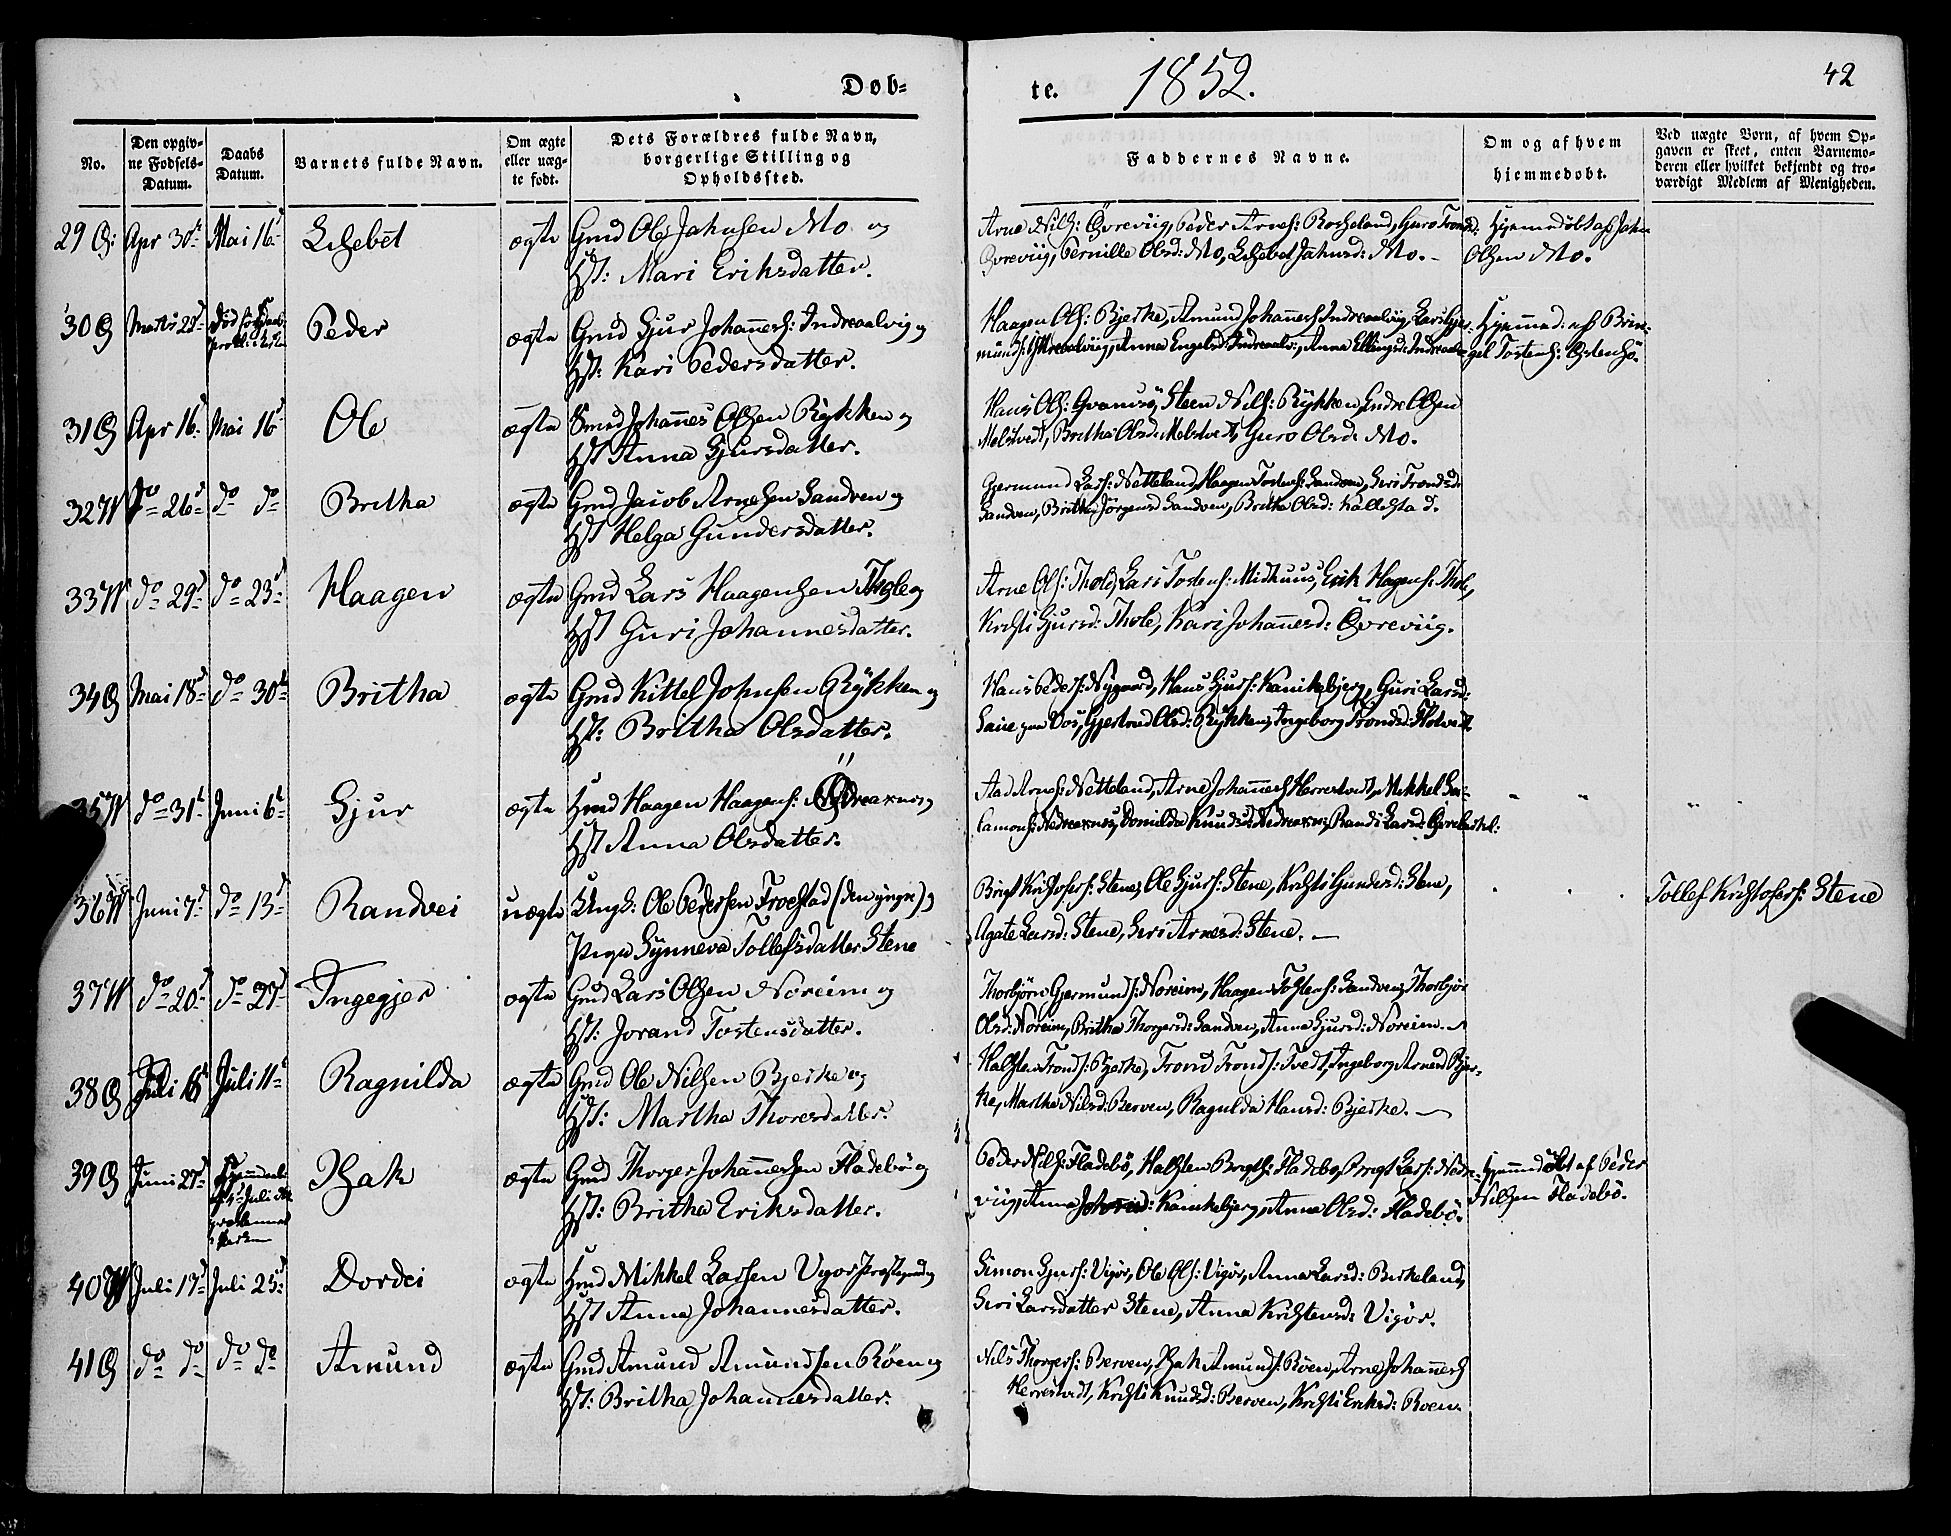 Døb-
te. 1852. 42
No.
Den opgiv-
ne Fødsels-
Datum.
Daabs
Datum.
Barnets fulde Navn.
Om ægte
eller uæg-
te født.
Dets Forældres fulde Navn,
borgerlige Stilling og
Opholdssted.
Faddernes Navne.
Om og af hvem
hjemmedøbt.
Ved uægte Børn, af hvem Op-
gaven er skeet, enten Barnemo-
deren eller hvilket bekjendt og tro-
værdigt Medlem af Menigheden.
29 G: Apr 30te Mai 16d Lisebet ægte Gmd Ole Johnsen Mo og
Hst: Mari Eriksdatter.
Arne Nils: Øvreviig, Peder Arnes: Rosseland, Guro Trond:
Øvreviig, Pernille Olsd: Mo, Lisebet Johnsd: Mo.
Hjemmedøbt af John
Olsen Mo.
30 G Marts 22d Peder ægte Gmd Sjur Johannes: Indreaalvig og
Hst: Kari Pedersdatter.
Haagen Ols: Bjerke, Amund Johannes: Indreaalviig, Lars
Anna Engelsd: Indreaalv:, Anna Ellingsd: Indreaal-
Hjemmed: af Bryn-
gel Tostens: Østensø.
31 G Apr 16d Mai 16d Ole ægte Gmd Johannes Olsen Rykken og
Hst Anna Sjursdatter.
Hans Ols: Steen Nils: Rykken, Endre Olsen
Melstvedt, Britha Olsd: Melstvedt, Guro Olsd: Mo.
32 W do 26d do do Britha ægte Gmd Jacob Arnesen Sandven og
Hst Helga Gundersdatter.
Gjermund Lars: Netteland, Haagen Tostens: Sandven, Seri Trondsd:
Sandven, Britha Jørgensd Sandven, Britha Olsd: Kallestad.
33 W do 29d do 23d Haagen ægte Gmd Lars Haagensen Thole og
Hst Guri Johannesdatter.
Arne Ols: Thole, Lars Tostens: Midhuus, Erik Hagens: Thole,
Kristi Sjursd: Thole, Kari Johannesd: Øvreviig.
34 G Mai 18d do 30te Britha ægte Gmd Kittel Johnsen Rykken og
Hst: Britha Olsdatter.
Hans Peders: Nygaard, Hans Sjurs: Kanikebjerg, Guri Larsd:
paa Vos, Gjertrud Olsd: Rykken, Ingeborg Trondsd: Flotvedt
35 W do 31te Juni 6te Sjur ægte Hmd Haagen Haagens: og
Hst Anna Olsdatter.
Aad Arnes: Netteland, Arne Johannes: Herrestvedt, Mikkel Sa-
lamons: Nedreaxnes, Domilda Knudsd: Nedreaxnes, Randi Larsd:
36 W Juni 7d do 13d Randvei uægte Ungk: Ole Pedersen Froestad (den yngre) og
Pige Synneva Tollefsdatter Stene
Brigt Kristofers: Stene, Ole Sjurs: Stene, Kristi Gundersd: Stene,
Agate Larsd: Stene, Seri Arnesd: Stene.
Tollef Kristofers: Stene
37 W do 20d do 27d Ingegjer ægte Gmd Lars Olsen Noreim og
Hst: Jorand Tostensdatter.
Thorbjørn Gjermunds: Noreim, Haagen Tostens: Sandven, Thorbjør
Olsd: Noreim, Britha Thorgersd: Sandven, Anna Sjursd: Noreim.
38 G Juli Juli 11te Ragnilda ægte Gmd Ole Nilsen Bjerke og
Hst: Martha Thoresdatter.
Halsten Tronds: Bjerke, Trond Tronds: Tvedt, Ingeborg Arnesd Bjer-
ke, Martha Nilsd: Berven, Ragnilda Hansd: Bjerke.
39 G Juni 27d Isak ægte Gmd Thorger Johannessen Fladebø og
Hst: Britha Eriksdatter.
Peder Nils: Fladebø, Halsten Brigts: Fladebø, Brigt Lars: Nedre-
viig, Anna Johnsd: Kanikebjerg, Anna Olsd: Fladebø.
Hjemmedøbt af Peder
Nilsen Fladebø.
40 W Juli 17d Juli 25d Dordei ægte Hmd Mikkel Larsen Vigør og
Hst Anna Johannesdatter.
Simon Sjurs: Vigør, Ole Ols: Vigør, Anna Larsd: Birkeland,
Seri Larsdatter Stene, Anna Kristensd: Vigør.
41 G do do do do Amund ægte Gmd Amund Amundsen Røen og
Hst: Britha Johannesdatter.
Nils Thorgers: Berven, Isak Amunds: Røen, Arne Johannes:
Herrestvedt, Kristi Knudsd: Berven, Kristi Eriksd: Røen.